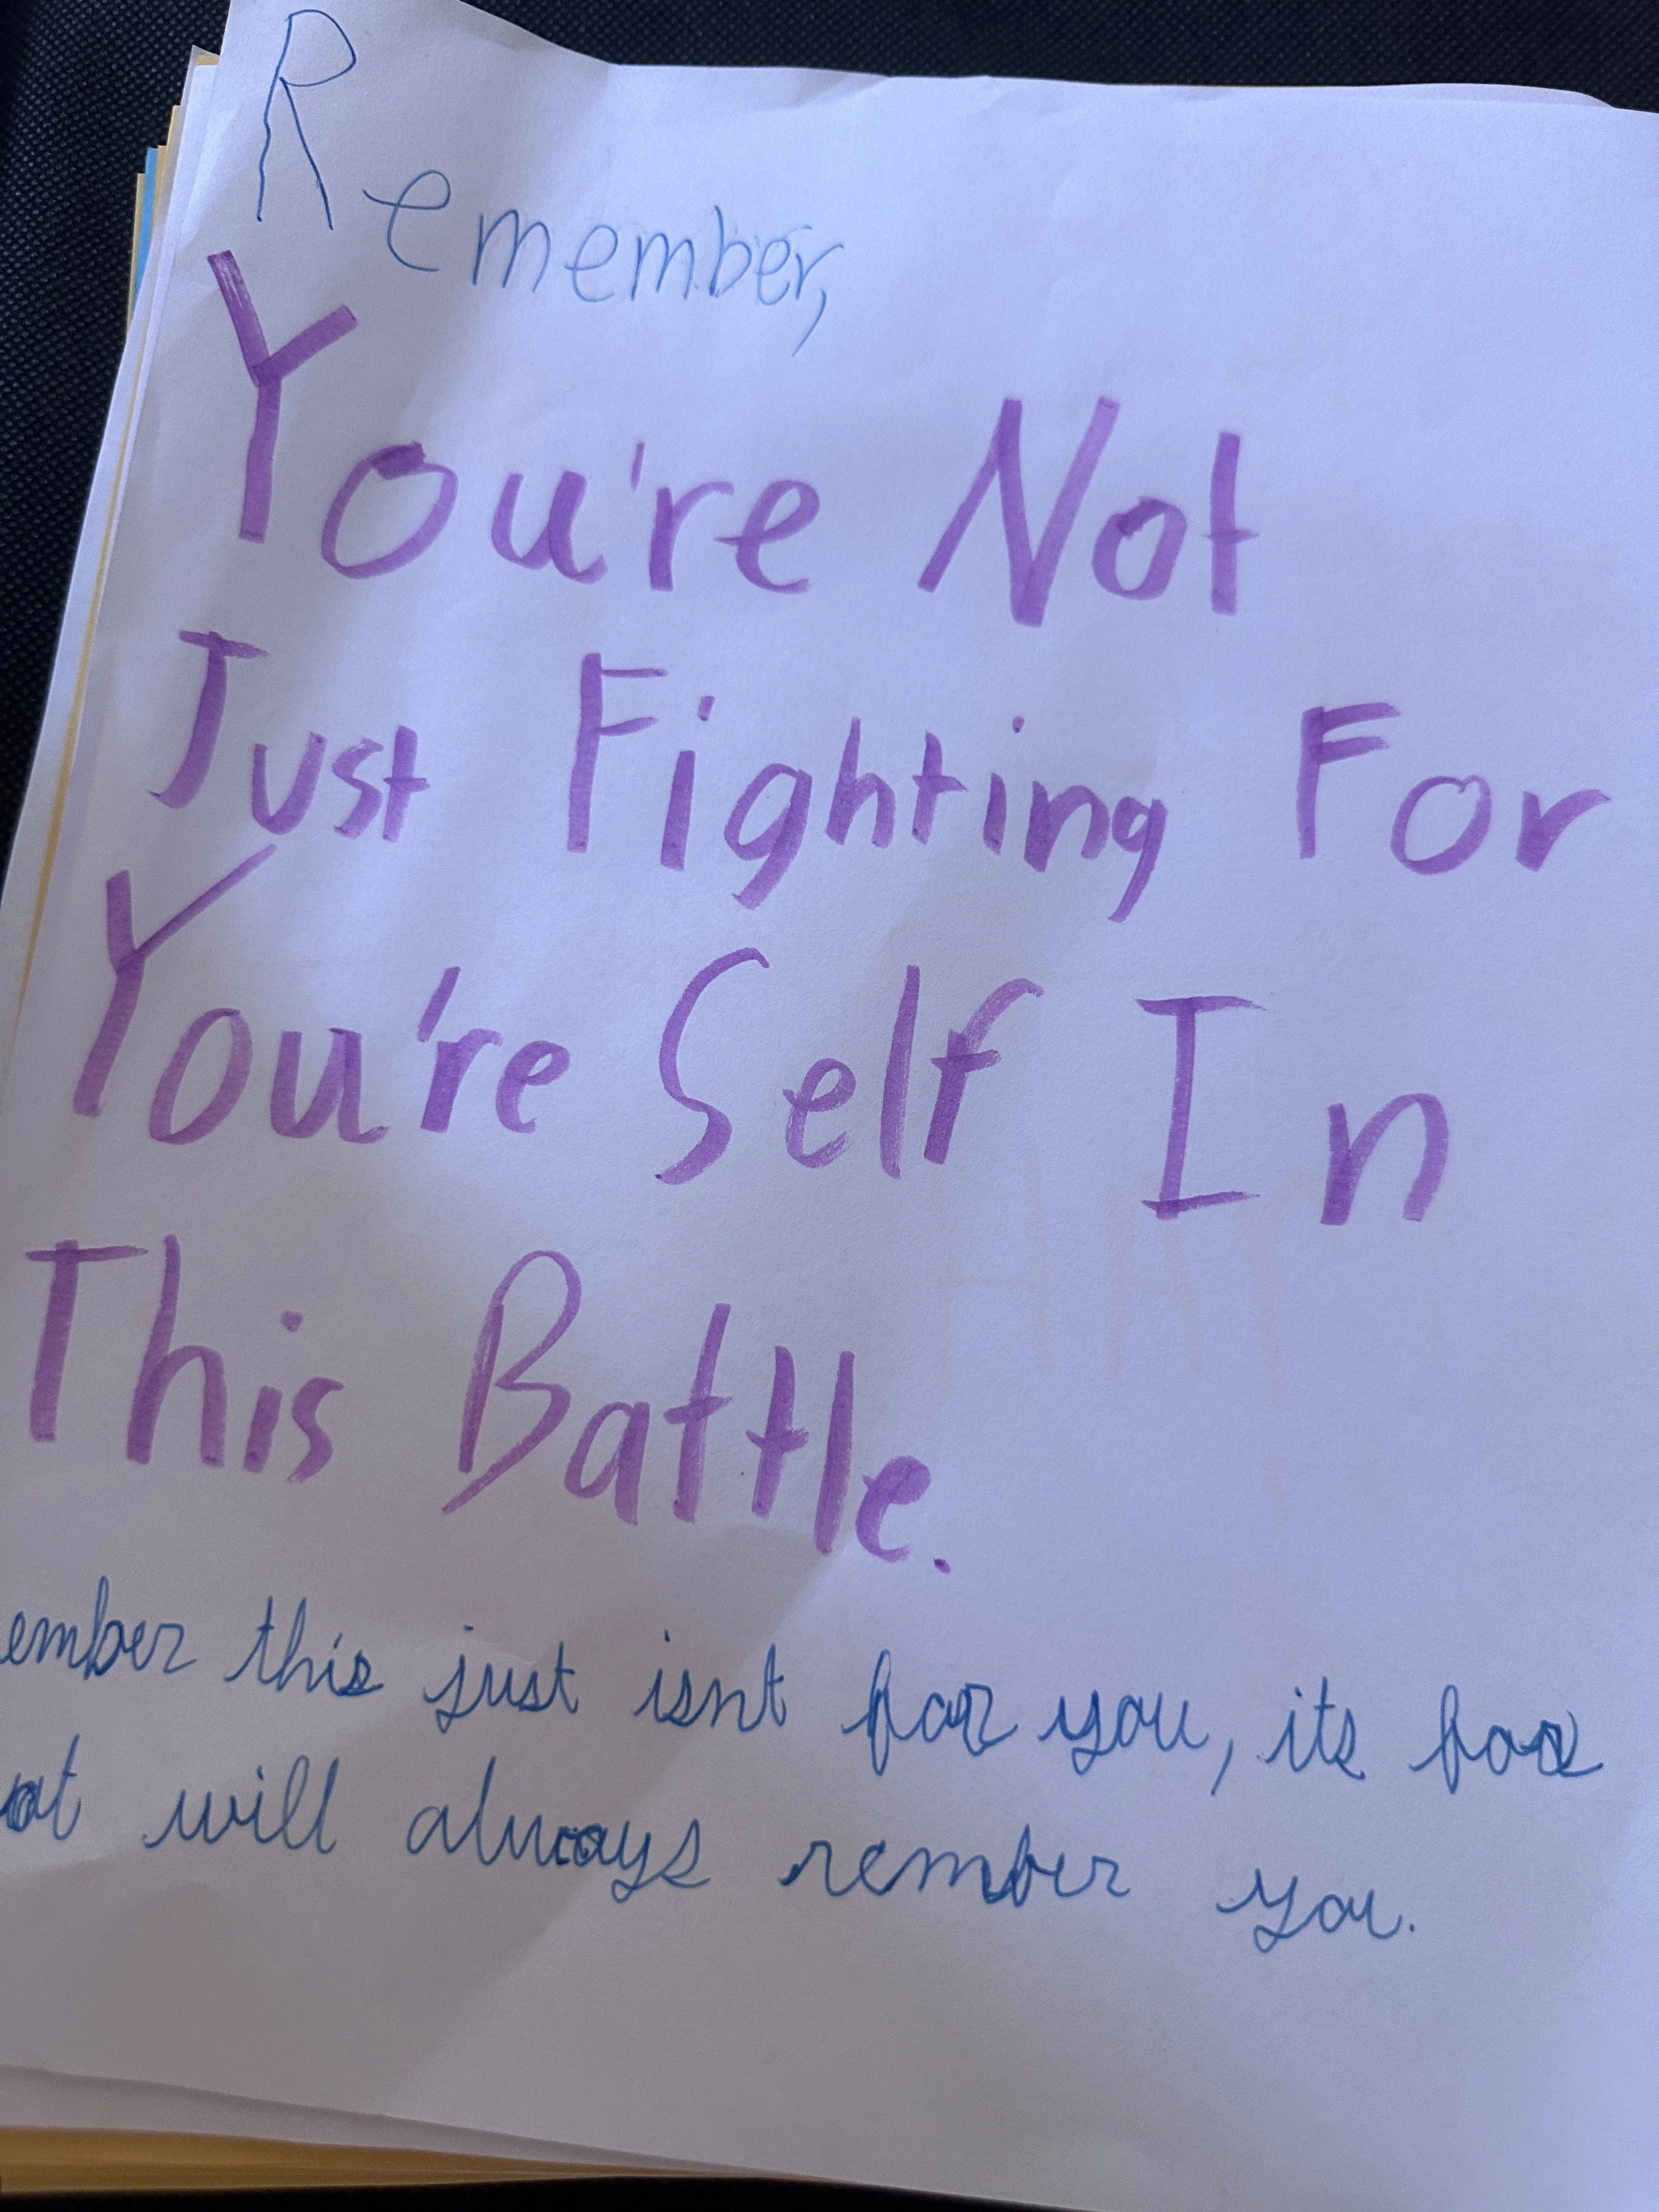 Remember,
You're Not
Just Fighting For
You're Self In
This Battle.
ember this just isnt for you, its for
at will always rember you.